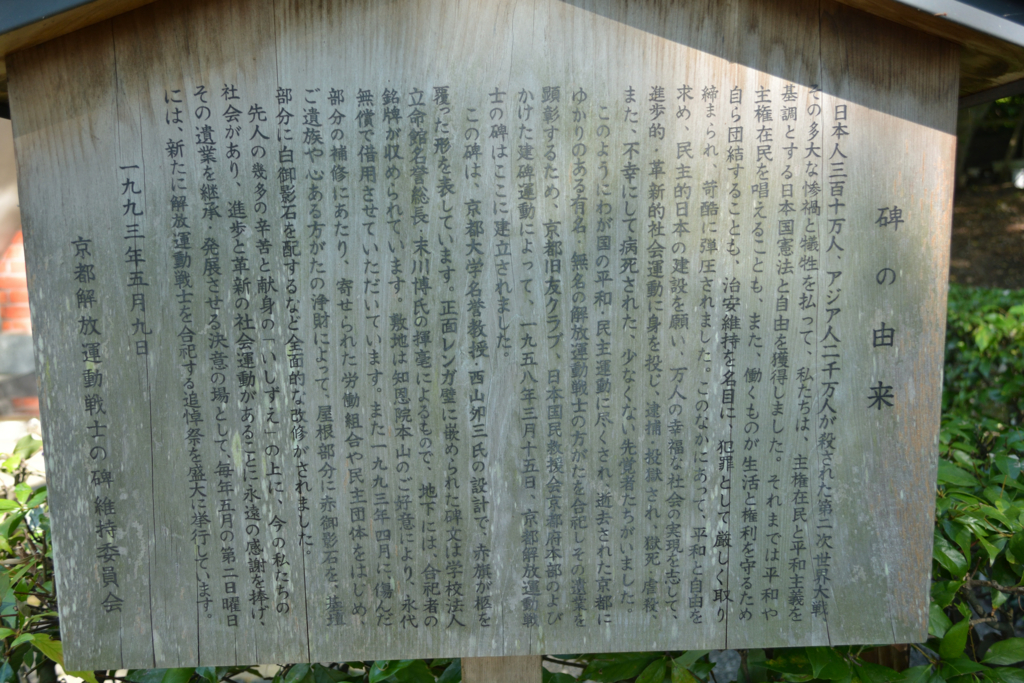 碑の由来
日本人三百十万人、アジア人二千万人が殺された第二次世界大戦、
その多大な惨禍と犠牲を払って、私たちは、主権在民と平和主義を
基調とする日本国憲法と自由を獲得しました。それまでは平和や
主権在民を唱えることも、また、働くものが生活と権利を守るため
自ら団結することも、治安維持を名目に、犯罪として厳しく取り
締まられ、苛酷に弾圧されました。このなかにあって、平和と自由を
求め、民主的日本の建設を願い、万人の幸福な社会の実現を志して、
進歩的・革新的社会運動に身を投じ、逮捕・投獄され、獄死・虐殺、
また、不幸にして病死された、少なくない先覚者たちがいました。
このようにわが国の平和・民主運動に尽くされ、逝去された京都に
ゆかりのある有名・無名の解放運動戦士の方がたを合祀しその遺業を
顕彰するため、京都旧友クラブ、日本国民救援会京都府本部のよび
かけた建碑運動によって、一九五八年三月十五日、京都解放運動戦
士の碑はここに建立されました。
この碑は、京都大学名誉教授・西山夘三氏の設計で、赤旗が柩を
覆った形を表しています。正面レンガ壁に嵌められた碑文は学校法人
立命館名誉総長・末川博氏の揮毫によるもので、地下には、合祀者の
銘牌が収められています。敷地は知恩院本山のご好意により、永代
無償で借用させていただいています。また一九九三年四月に傷んだ
部分の補修にあたり、寄せられた労働組合や民主団体をはじめ、
ご遺族や心ある方がたの浄財によって、屋根部分に赤御影石を、基壇
部分に白御影石を配するなど全面的な改修がされました。
先人の幾多の辛苦と献身の「いしずえ」の上に、今の私たちの
社会があり、進歩と革新の社会運動があることに永遠の感謝を捧げ、
その遺業を継承・発展させる決意の場として、毎年五月の第二日曜日
には、新たに解放運動戦士を合祀する追悼祭を盛大に挙行しています。
一九九三年五月九日
京都解放運動戦士の碑維持委員会